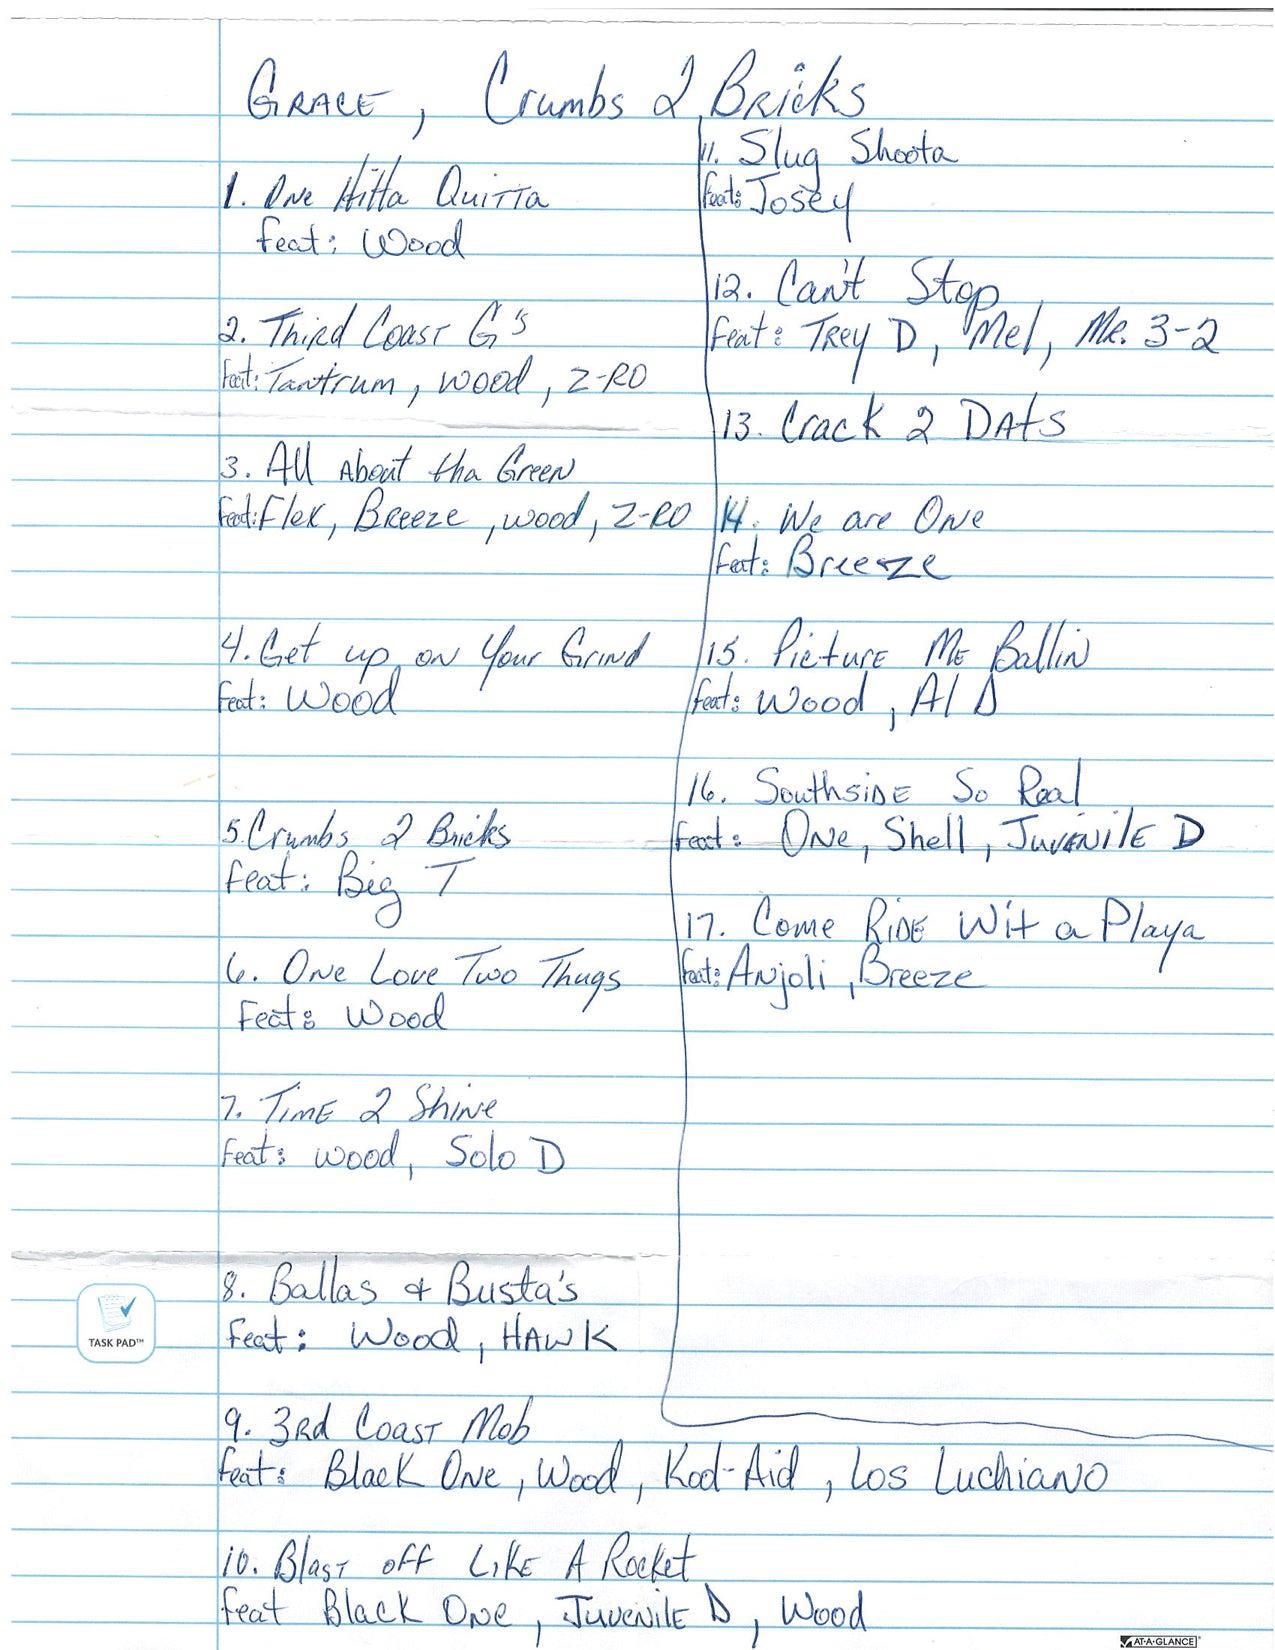 GRACE, Crumbs 2 Bricks
1. One Hitta Quitta
feat: Wood
2. Third Coast G's
feat: Tantrum, Wood, Z-RO
3. All About tha Green
feat: Flex, Breeze, Wood, Z-RO
4. Get up on Your Grind
feat: Wood
5. Crumbs 2 Bricks
feat: Big T
6. One Love Two Thugs
Feat: Wood
7. Time 2 Shine
feat: Wood, Solo D
8. Ballas & Busta's
feat: Wood, HAWK
9. 3rd Coast Mob
feat: Black One, Wood, Kod-Aid, Los Luchiano
10. Blast off Like A Rocket
feat Black One, Juvenile D, Wood
11. Slug Shoota
feat: Josey
12. Can't Stop
feat: Trey D, Mel, Mr. 3-2
13. Crack 2 Dats
14. We are One
feat: Breeze
15. Picture Me Ballin
feat: Wood, Al D
16. Southside So Real
feat: One, Shell, Juvenile D
17. Come Ride Wit a Playa
feat: Anjoli, Breeze
TASK PAD™
AT-A-GLANCE®